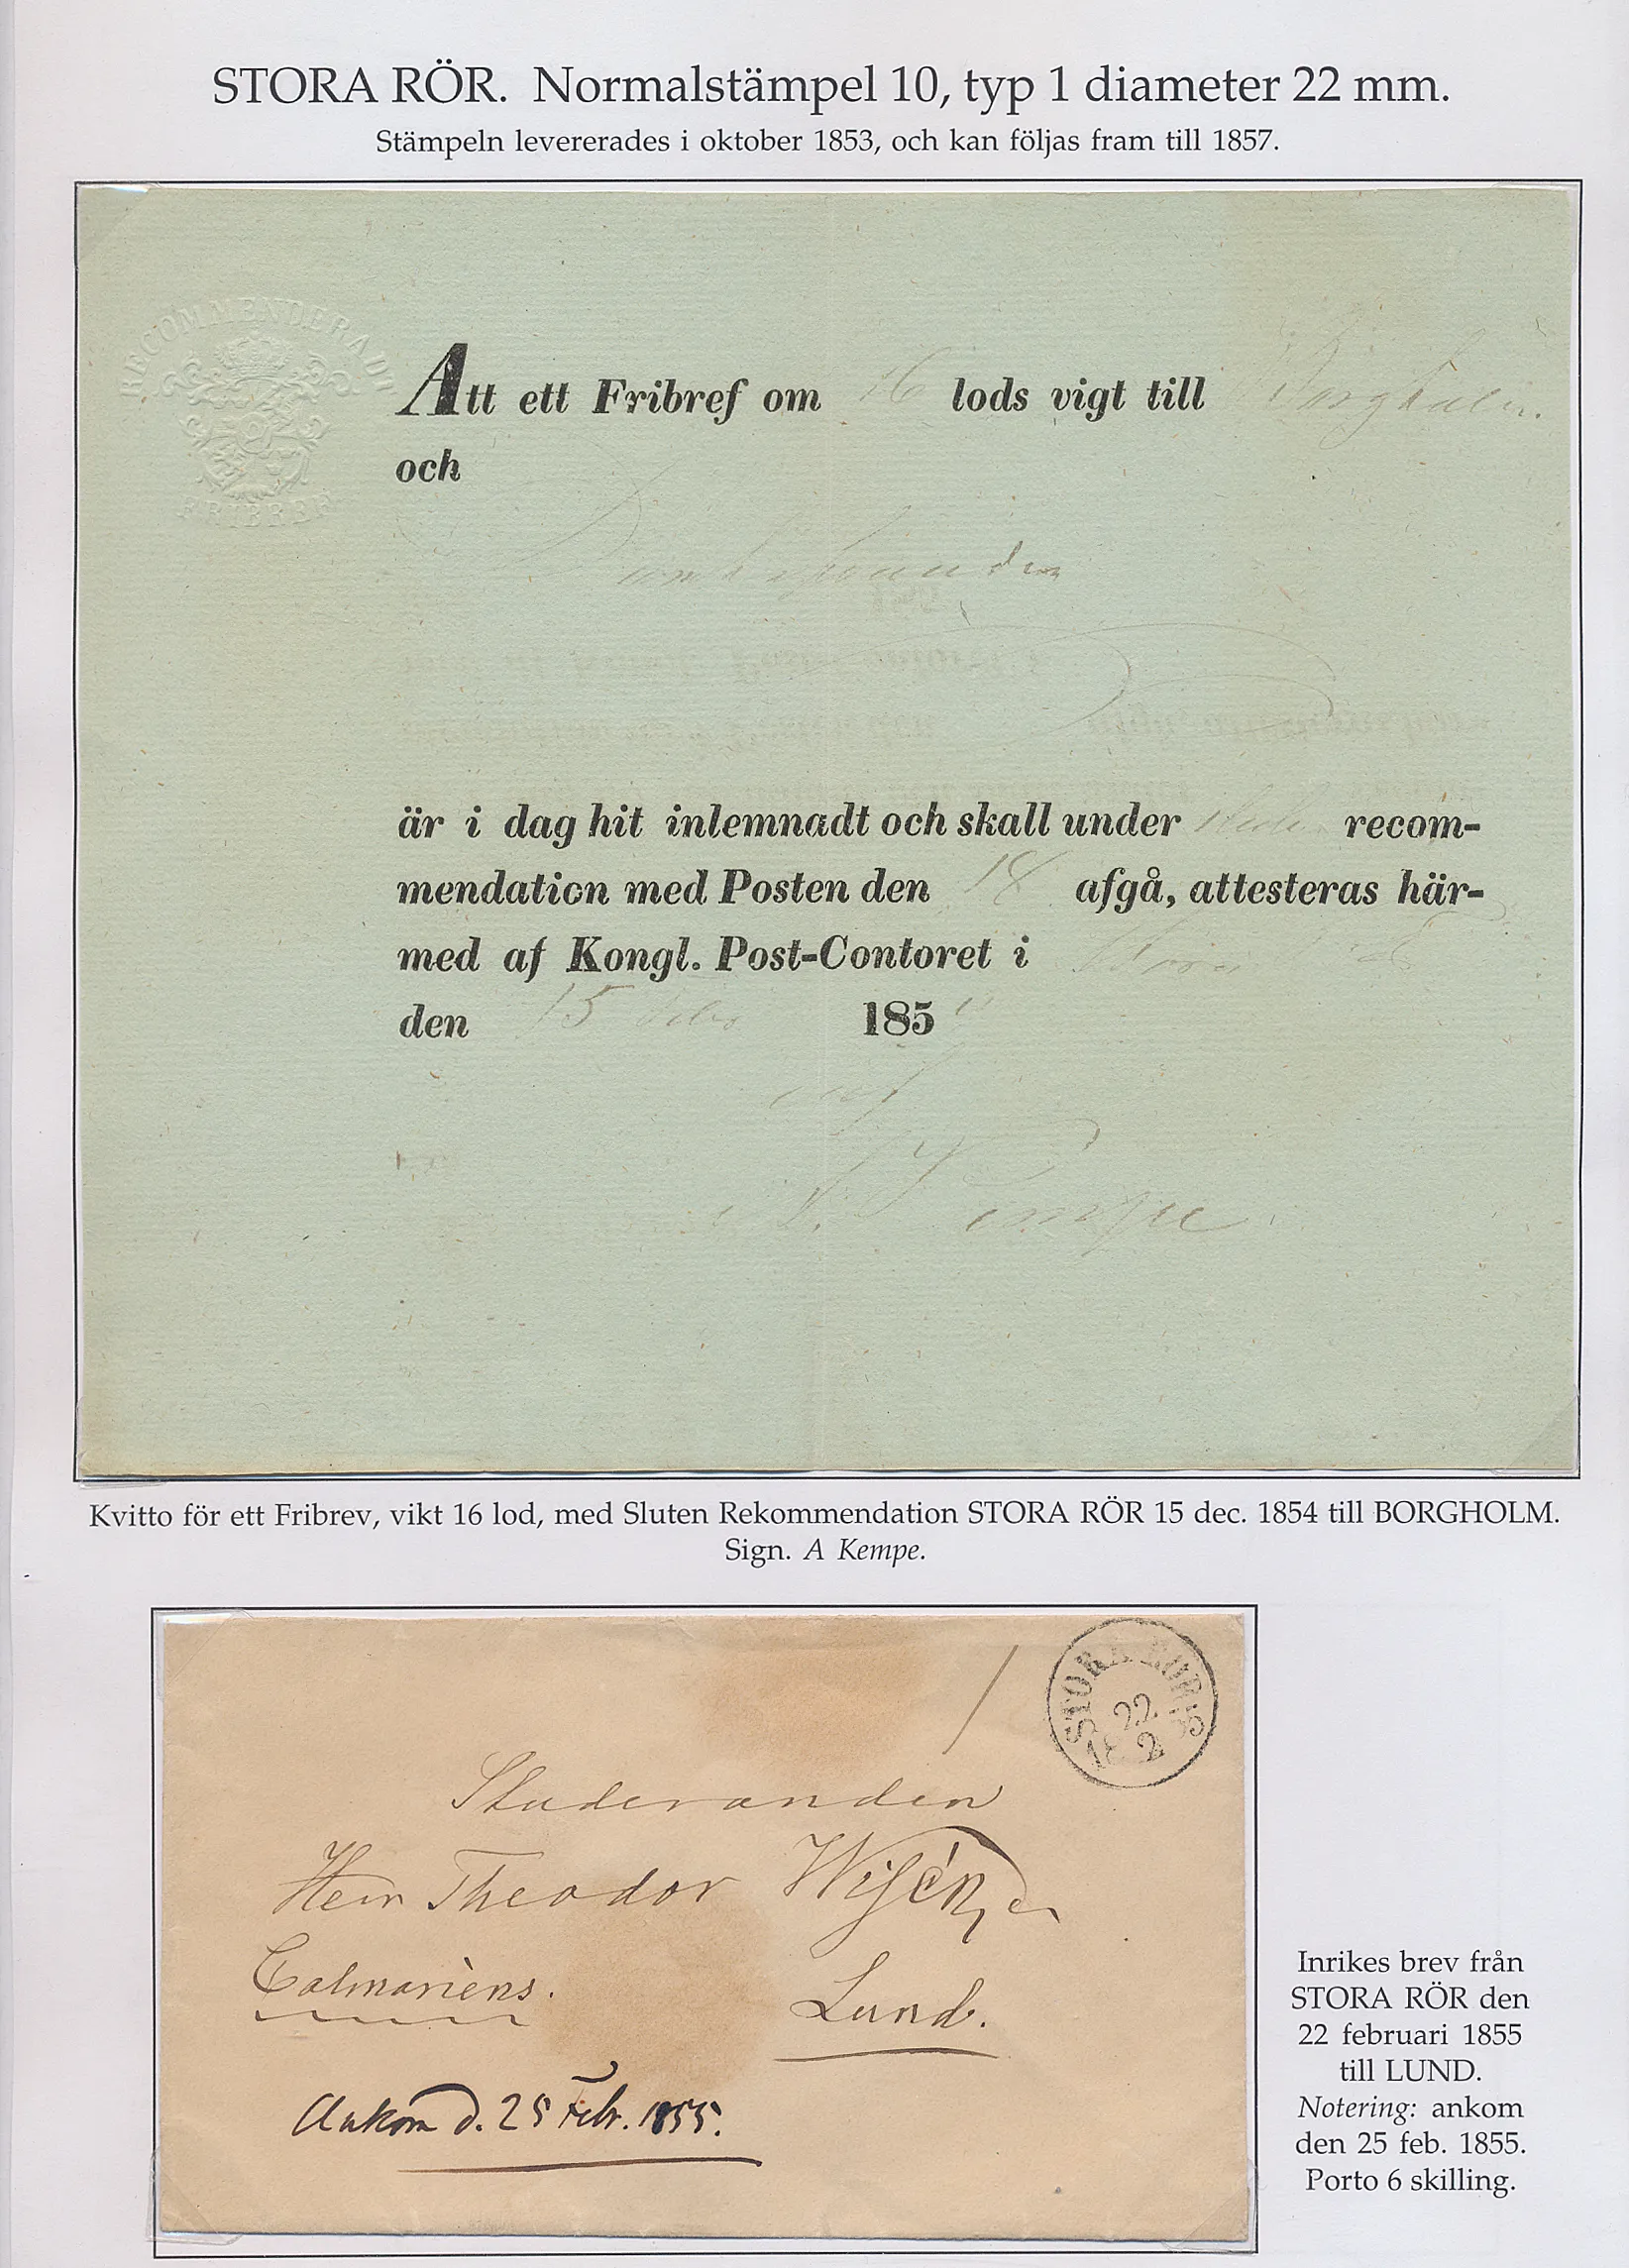 STORA RÖR. Normalstämpel 10, typ 1 diameter 22 mm.
Stämpeln levererades i oktober 1853, och kan följas fram till 1857.
RECOMMENDERADT
FRIBREF
Att ett Fribref om 16 lods vigt till Borgholm.
och
är i dag hit inlemnadt och skall under sluten recom-
mendation med Posten den 18 afgå, attesteras här-
med af Kongl. Post-Contoret i Stora Rör
den 15 Decbr 1854
A Kempe
Kvitto för ett Fribrev, vikt 16 lod, med Sluten Rekommendation STORA RÖR 15 dec. 1854 till BORGHOLM.
Sign. A Kempe.
STORA RÖR
22
2
1855
Studeranden
Herr Theodor Wisén,
Calmariens.
Lund.
Ankom d. 25 Febr. 1855.
Inrikes brev från
STORA RÖR den
22 februari 1855
till LUND.
Notering: ankom
den 25 feb. 1855.
Porto 6 skilling.